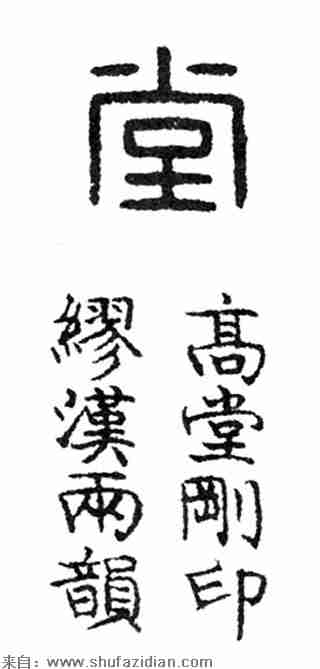 堂
高堂剛印
繆漢兩韻
来自：www.shufazidian.com